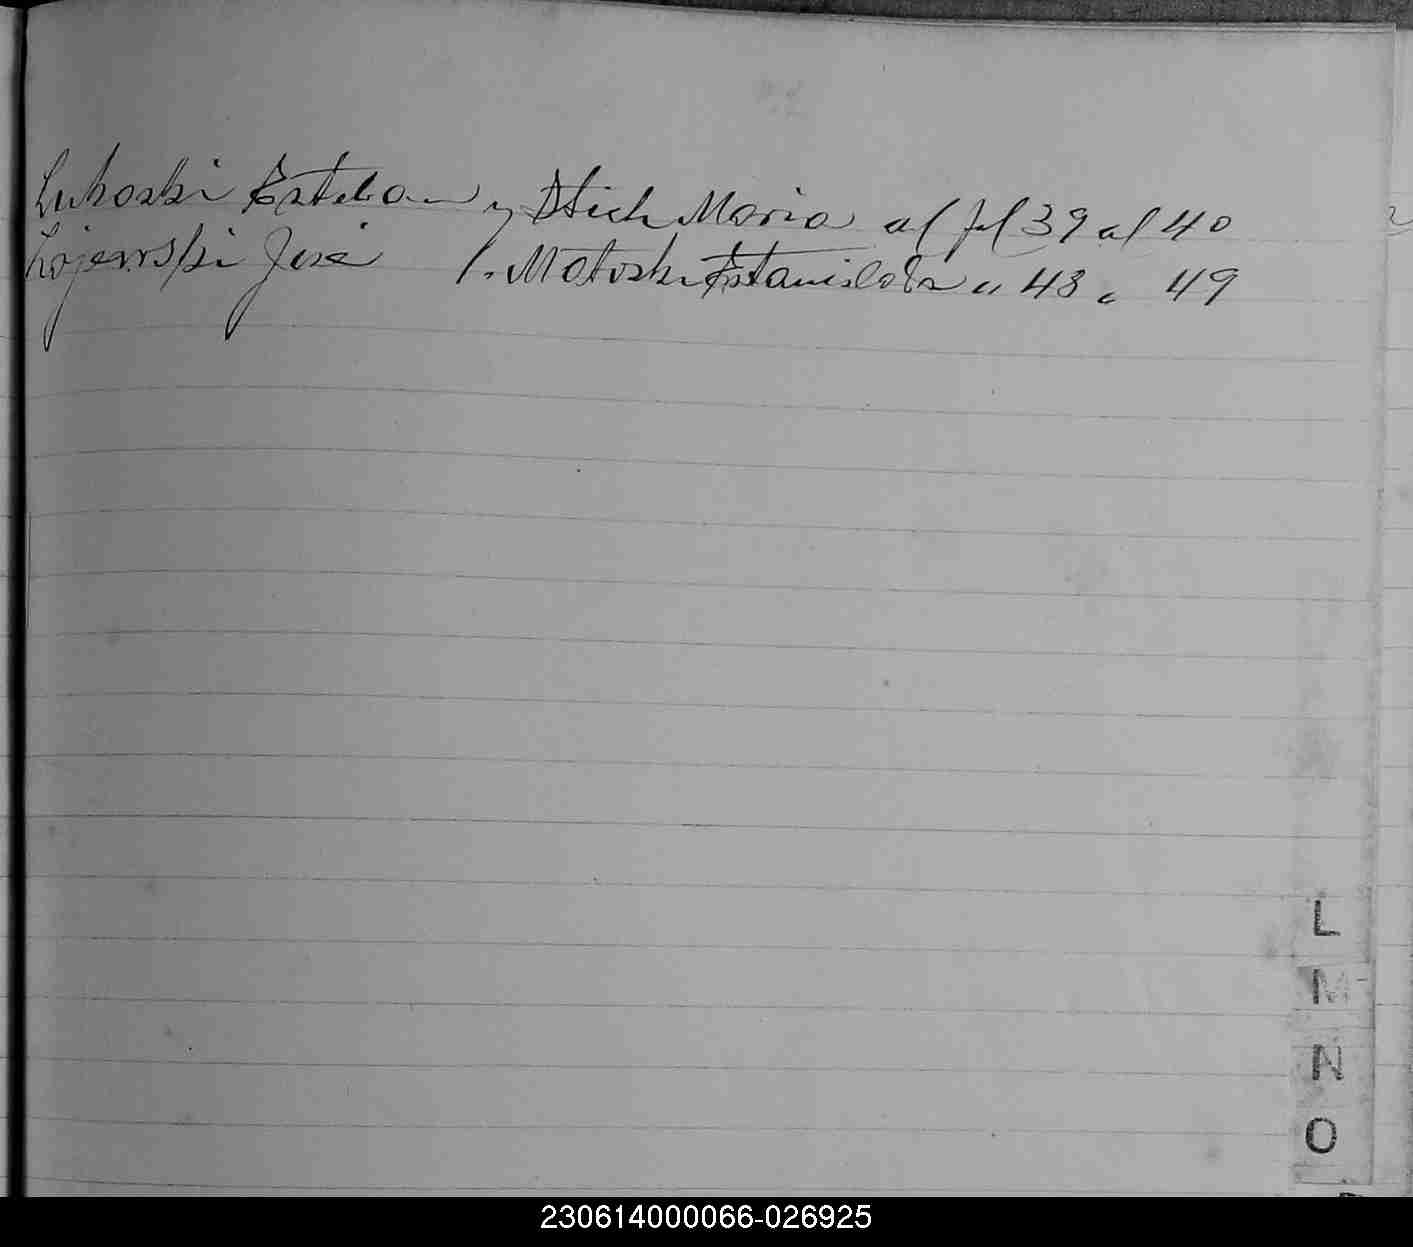 Lukoski Esteban y Stich Maria al fol 39 al 40
Lojewski José /. Motoski Estanislada " 48 " 49
L
M
N
O
230614000066-026925